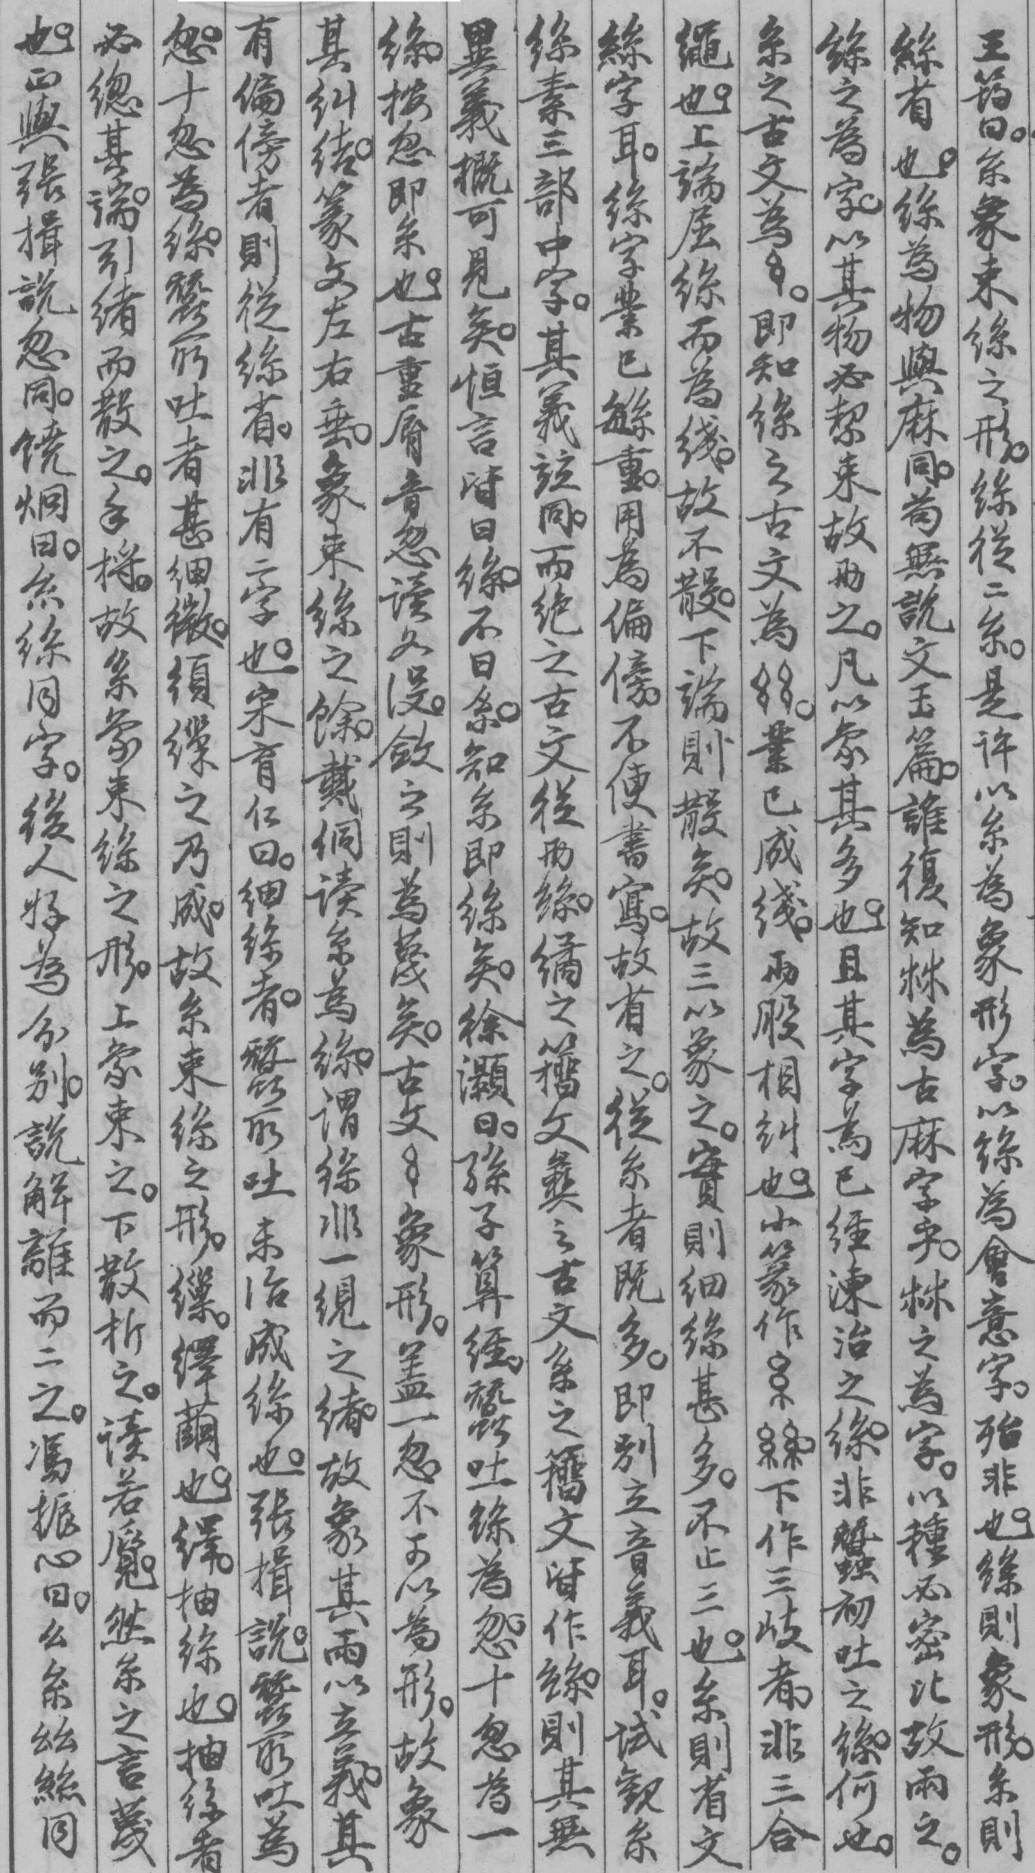 王筠曰。糸象束絲之形。絲從二糸。是許以糸為象形字。以絲為會意字。殆非也。絲則象形。糸則
絲省也。絲為物與麻同。苟無說文玉篇。誰復知𣏟為古麻字乎。𣏟之為字。以種必密比故兩之。
絲之為字。以其物必絜束故兩之。凡以象其多也。且其字為已經湅治之絲。非蠶初吐之絲。何也。
糸之古文為𠱸。即知絲之古文為𢆶。業已成綫。兩股相糾也。小篆作糸絲下作三歧者。非三合
繩也。上端屈絲而為綫。故不散。下端則散矣。故三以象之。實則細絲甚多。不止三也。糸則省文
絲字耳。絲字業已緐重。用為偏傍。不便書寫。故省之。從糸者既多。即別立音義耳。試觀糸
絲素三部中字。其義竝同。而絶之古文從兩絲。繘之籀文彝之古文系之籀文皆作絲。則其無
異義概可見矣。恒言皆曰絲。不曰糸。知糸即絲矣。徐灝曰。孫子算經。蠶吐絲為忽。十忽為一
絲。按忽即糸也。古重脣音忽讀如沒。斂之則為蔑矣。古文𠱸象形。盖一忽不可以為形。故象
其糾結。篆文左右垂。象束絲之餘。戴侗讀糸為絲。謂絲非一縨之緒。故象其兩以立義。其
有偏傍者則從絲省。非有二字也。宋育仁曰。細絲者。蠶所吐未治成絲也。張揖說。蠶所吐為
忽。十忽為絲。蠶所吐者甚細微。須繅之乃成。故糸束絲之形。繅。繹繭也。繹。抽絲也。抽絲者
必總其端。引緒而散之。手捋。故糸象束絲之形。上象束之。下散析之。讀若覛。然糸之言蔑
也。正與張揖說忽同。饒炯曰。糸絲同字。後人好為分別。說解離而二之。馮振心曰。幺糸𢆶絲同